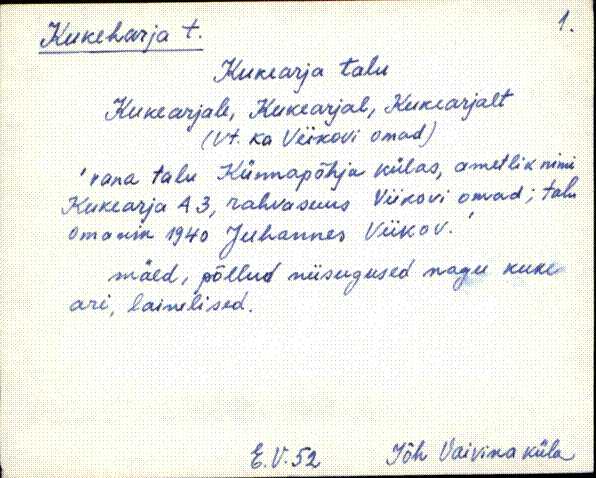 Kukeharja t.
1.
Kukearja talu
Kukearjale, Kukearjal, Kukearjalt
(vt. ka Viikovi omad)
'vana talu Künnapõhja külas, ametlik nimi
Kukearja A 3, rahvasuus Viikovi omad; talu
omanik 1940 Juhannes Viikov.'
mäed, põllud niisugused nagu kuke
ari, lainelised.
E.V. 52
Jõh Vaivina küla